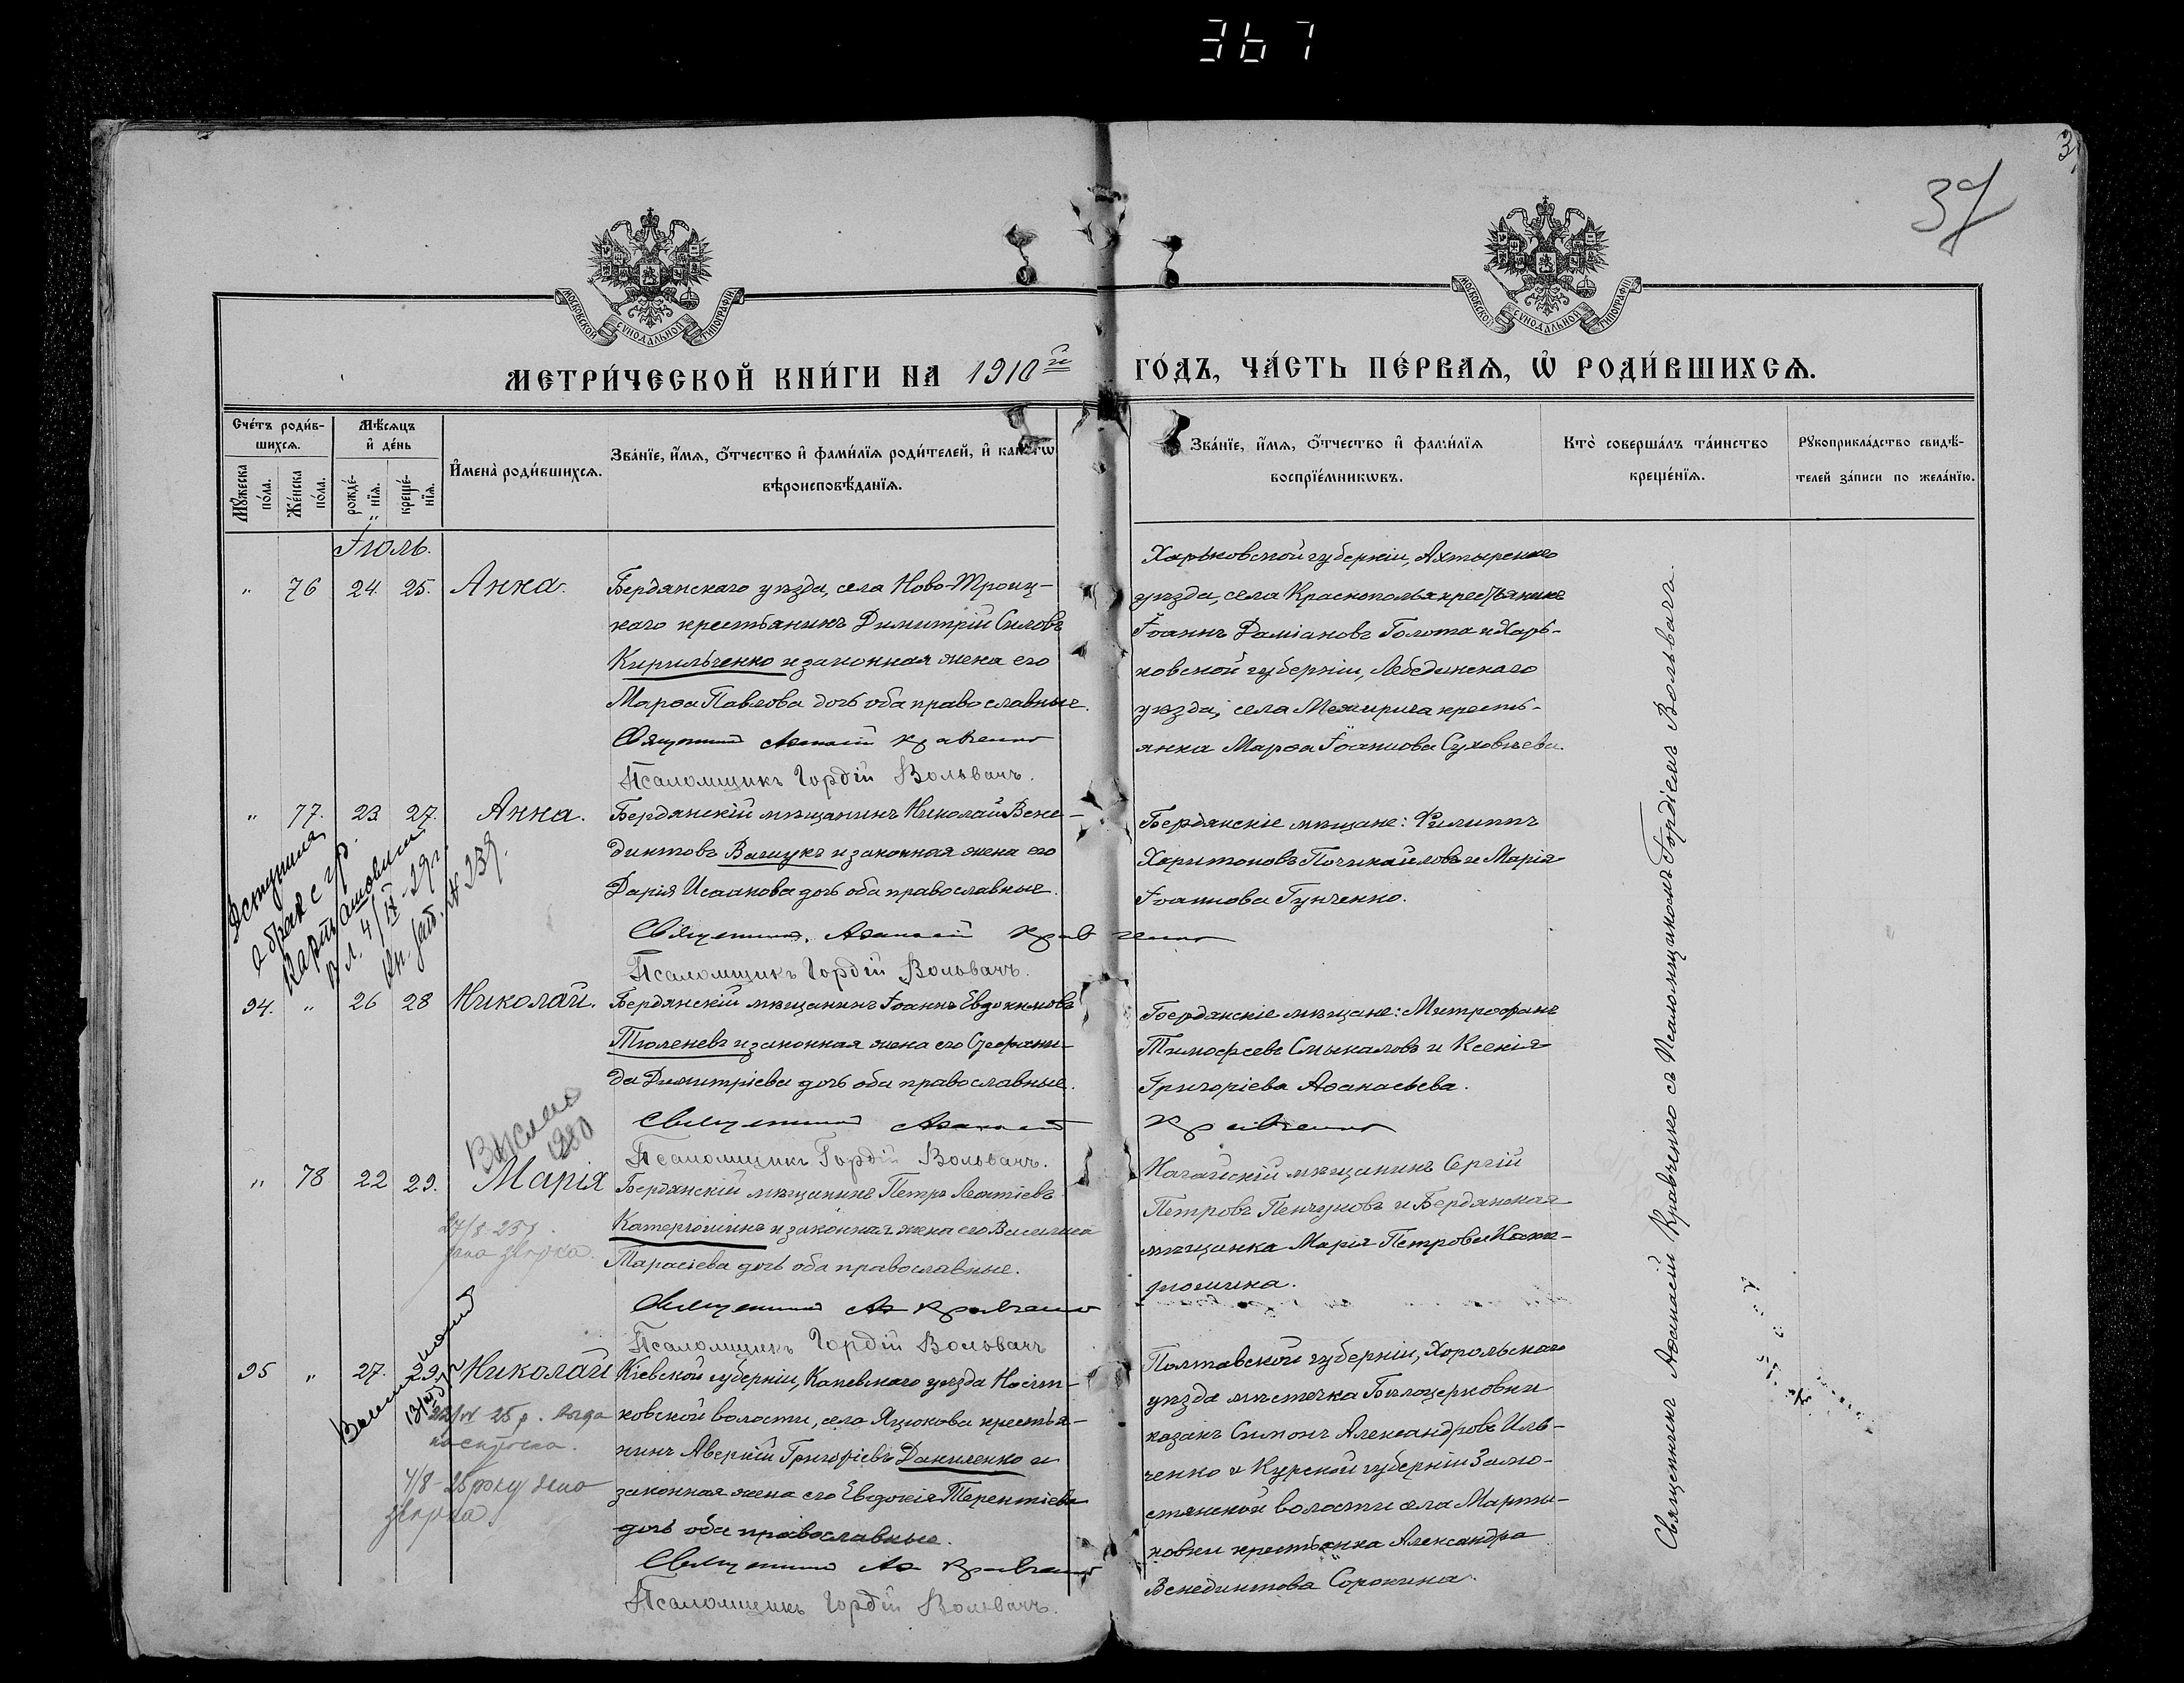 367
3
37
МОСКОВСКОЙ СѴНОДАЛЬНОЙ ТИПОГРАФІИ
МОСКОВСКОЙ СѴНОДАЛЬНОЙ ТИПОГРАФІИ
МЕТРИ́ЧЕСКОЙ КНИ́ГИ НА 1910й ГО́ДЪ, ЧА́СТЬ ПЕ́РВАѦ, Ѡ҆ РОДИ́ВШИХСѦ.
Сче́тъ роди́в-
шихсѧ.
Мꙋ́жеска по́ла.
Же́нска по́ла.
Мѣ́сѧцъ
и҆ де́нь
рожде́-
нїѧ.
креще́-
нїѧ.
И҆мена̀ роди́вшихсѧ.
Зва́нїе, и҆́мѧ, ѻ҆́тчество и҆ фами́лїѧ роди́телей, и҆ како́гѡ
вѣроисповѣ́данїѧ.
Зва́нїе, и҆́мѧ, ѻ҆́тчество и҆ фами́лїѧ
воспрїе́мникѡвъ.
Кто̀ соверша́лъ та́инство
креще́нїѧ.
Рꙋкоприкла́дство свидѣ́-
телей за́писи по жела́нїю.
Іюль.
" 76 24. 25. Анна.
Бердянскаго уѣзда, села Ново-Троиц-
каго крестьянинъ Димитрій Силовъ
Кирильченко и законная жена его
Марѳа Павлова дочь оба православные.
Священникъ Аѳанасій Кравченко
Псаломщикъ Гордій Вольвачъ.
Харьковской губерніи, Ахтырскаго
уѣзда, села Краснополья крестьянинъ
Іоаннъ Даміановъ Голота и Харь-
ковской губерніи, Лебединскаго
уѣзда, села Межирича кресть-
янка Марѳа Іоаннова Суховѣева.
" 77. 23 27. Анна.
Бердянскій мѣщанинъ Николай Вене-
диктовъ Ващукъ и законная жена его
Дарія Исаакова дочь оба православные.
Священникъ Аѳанасій Кравченко
Псаломщикъ Гордій Вольвачъ.
Бердянскіе мѣщане: Филиппъ
Харитоновъ Почикайловъ и Марія
Іоаннова Гунченко.
Вступила
в брак с гр.
4/IX-29 г.
№ 239.
94. " 26 28 Николай.
Бердянскій мѣщанинъ Іоаннъ Евдокимовъ
Тюленевъ и законная жена его Серафи-
да Димитріева дочь оба православные.
Священникъ Аѳанасій Кравченко
Псаломщикъ Гордій Вольвачъ.
Бердянскіе мѣщане: Митрофанъ
Тимофеевъ Смыкаловъ и Ксенія
Григоріева Аѳанасьева.
" 78 22 29. Марія
Бердянскій мѣщанинъ Петръ Леонтіевъ
и законная жена его Василиса
Тарасіева дочь оба православные.
Священникъ Аѳ Кравченко
Псаломщикъ Гордій Вольвачъ
Ногайскій мѣщанинъ Сергій
Петровъ Пенчуковъ и Бердянская
мѣщанка Марія Петрова
95 " 27. 29. Николай
Кіевской губерніи, Каневскаго уѣзда
ковской волости, села Яцюкова крестья-
нинъ Аверкій Григоріевъ Даниленко и
законная жена его Евдокія Терентіева
дочь оба православные.
Священникъ Аѳ Кравченко
Псаломщикъ Гордій Вольвачъ.
Полтавской губерніи, Хорольскаго
уѣзда мѣстечка Бѣлоцерковки
казакъ Симонъ Александровъ Иль-
ченко и Курской губерніи Замо-
стянской волости села Марти-
новки крестьянка Александра
Венедиктова Сорокина.
Священникъ Аѳанасій Кравченко съ Псаломщикомъ Гордіемъ Вольвачъ.